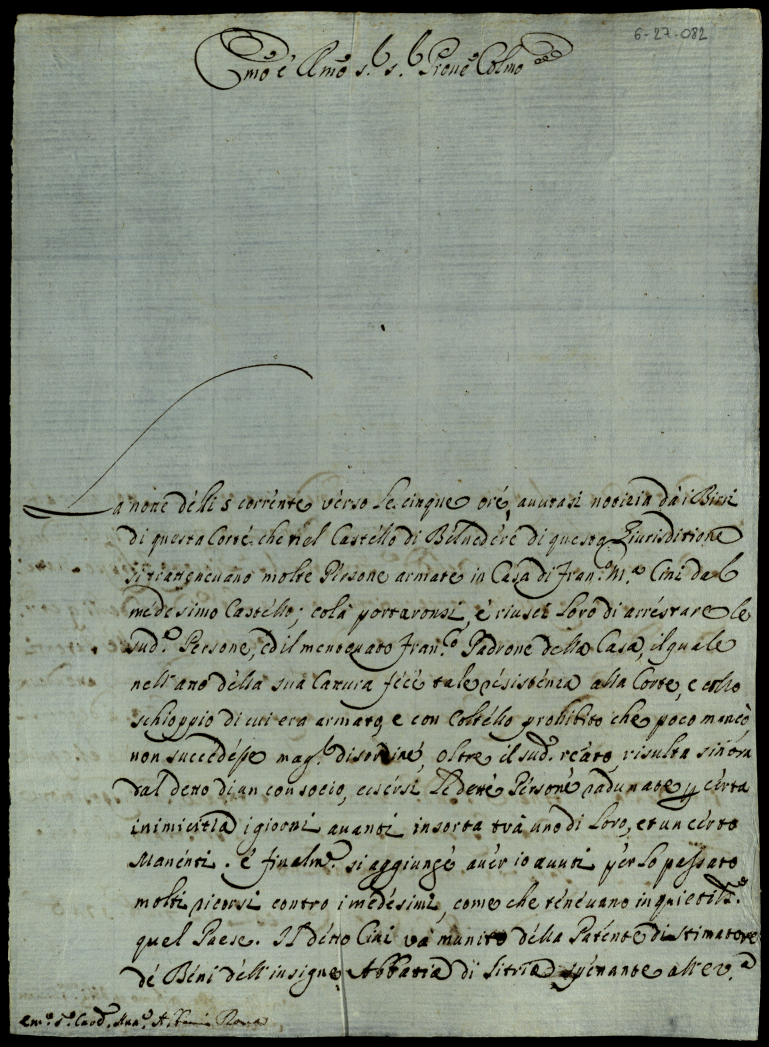 6-27-082
Emo e Rmo s.r s.r Prone Colmo
La notte delli 5 corrente verso le cinque ore, avutasi notizia dà i Birri
di questa Corte che nel Castello di Belvedere di questa Giurisditione
si trattenevano molte Persone armate in Casa di Fran.co M.a Cini del
medesimo Castello; colà portaronsi, e riuscì loro di arrestare le
sud.e Persone, ed il mentovato Fran.co Padrone della Casa, il quale
nell'atto della sua Cattura fece tale resistenza alla Corte, e collo
schioppio di cui era armato, e con Coltello prohibito che poco mancò
non succedesse mag.r disordine, oltre il sud.o reato, risulta sin ora
dal detto di un consocio, essersi le dette Persone radunate p certa
inimicitia i giorni avanti insorta trà uno di loro, et un certo
Manenti. e finalm.e si aggiunge aver io avuti per lo passato
molti ricorsi contro i medesimi, come che tenevano inquietiss.o
quel Paese. Il detto Cini và munito della Patente di stimatore
de Beni dell'insigne Abbatia di Sitria spettante all'E.V.a
Em.o S.r Card. Ann.e Albani Roma